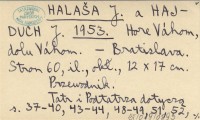 HALAŠA J. a HAJ-
DUCH J. 1953. Hore Váhom,
dolu Váhom. — Bratislava.
Stron 60, il., obl., 12 x 17 cm.
Przewodnik.
Tatr i Podtatrza dotyczą
s. 37-40, 43-44, 48-49, 51, 52